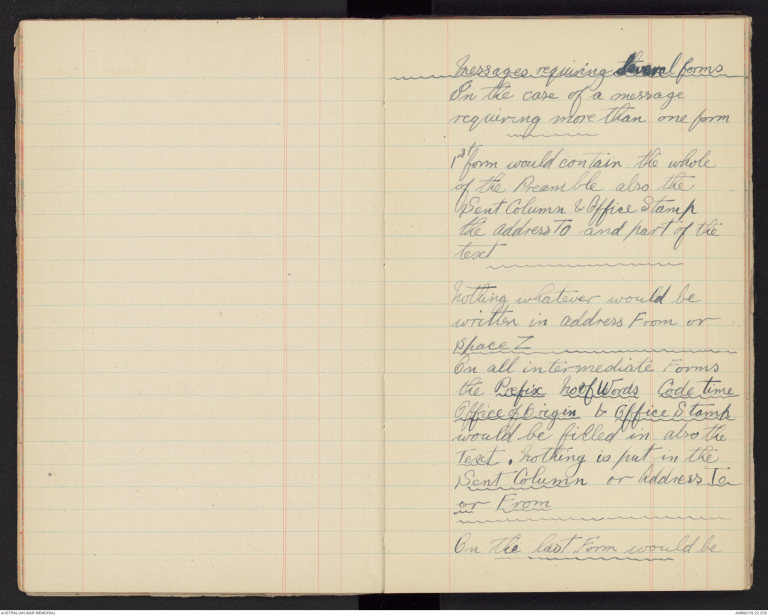 Messages requiring several forms
In the case of a message
requiring more than one form
1st form would contain the whole
of the Preamble also the
Sent Column & Office Stamp
the address To and part of the
text
Nothing whatever would be
written in address From or
space Z
On all intermediate Forms
the Prefix No of Words Code time
Office of Origin & Office Stamp
would be filled in also the
Text. Nothing is put in the
Sent Column or Address To
or From
On the last Form would be
AUSTRALIAN WAR MEMORIAL